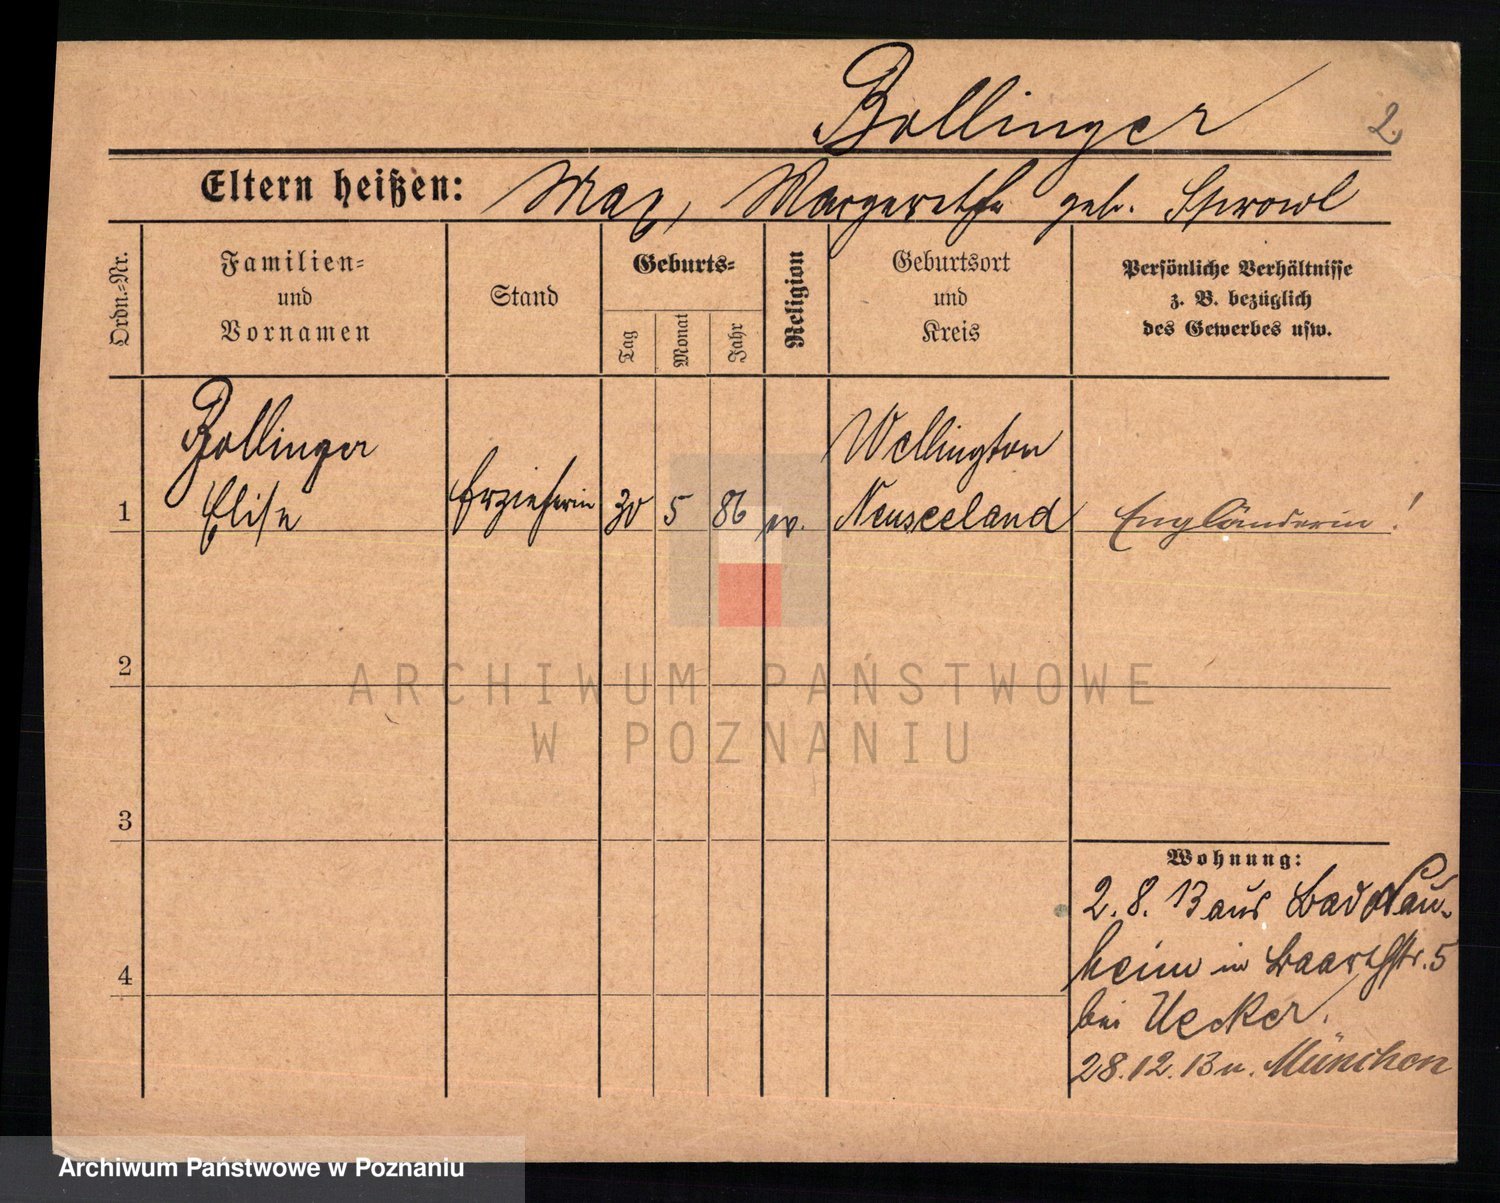 Bollinger 2.
Eltern heißen: Max, Margarethe geb.
Ordn.-Nr.
Familien-
und
Vornamen
Stand
Geburts-
Tag
Monat
Jahr
Religion
Geburtsort
und
Kreis
Persönliche Verhältnisse
z. B. bezüglich
des Gewerbes usw.
Bollinger Wellington
1 Elise Erzieherin 30 5 86 ev. Neuseeland Engländerin!
2
ARCHIWUM PAŃSTWOWE
W POZNANIU
3
Wohnung:
2. 8. 13 aus Bad Nau-
heim in 5
4
bei Uecker.
28. 12. 13 n. München
Archiwum Państwowe w Poznaniu